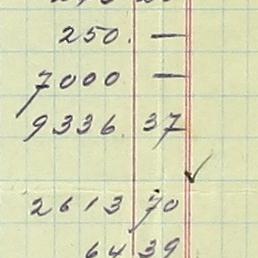 250. —
7000 —
9336. 37
2613 70
64 39